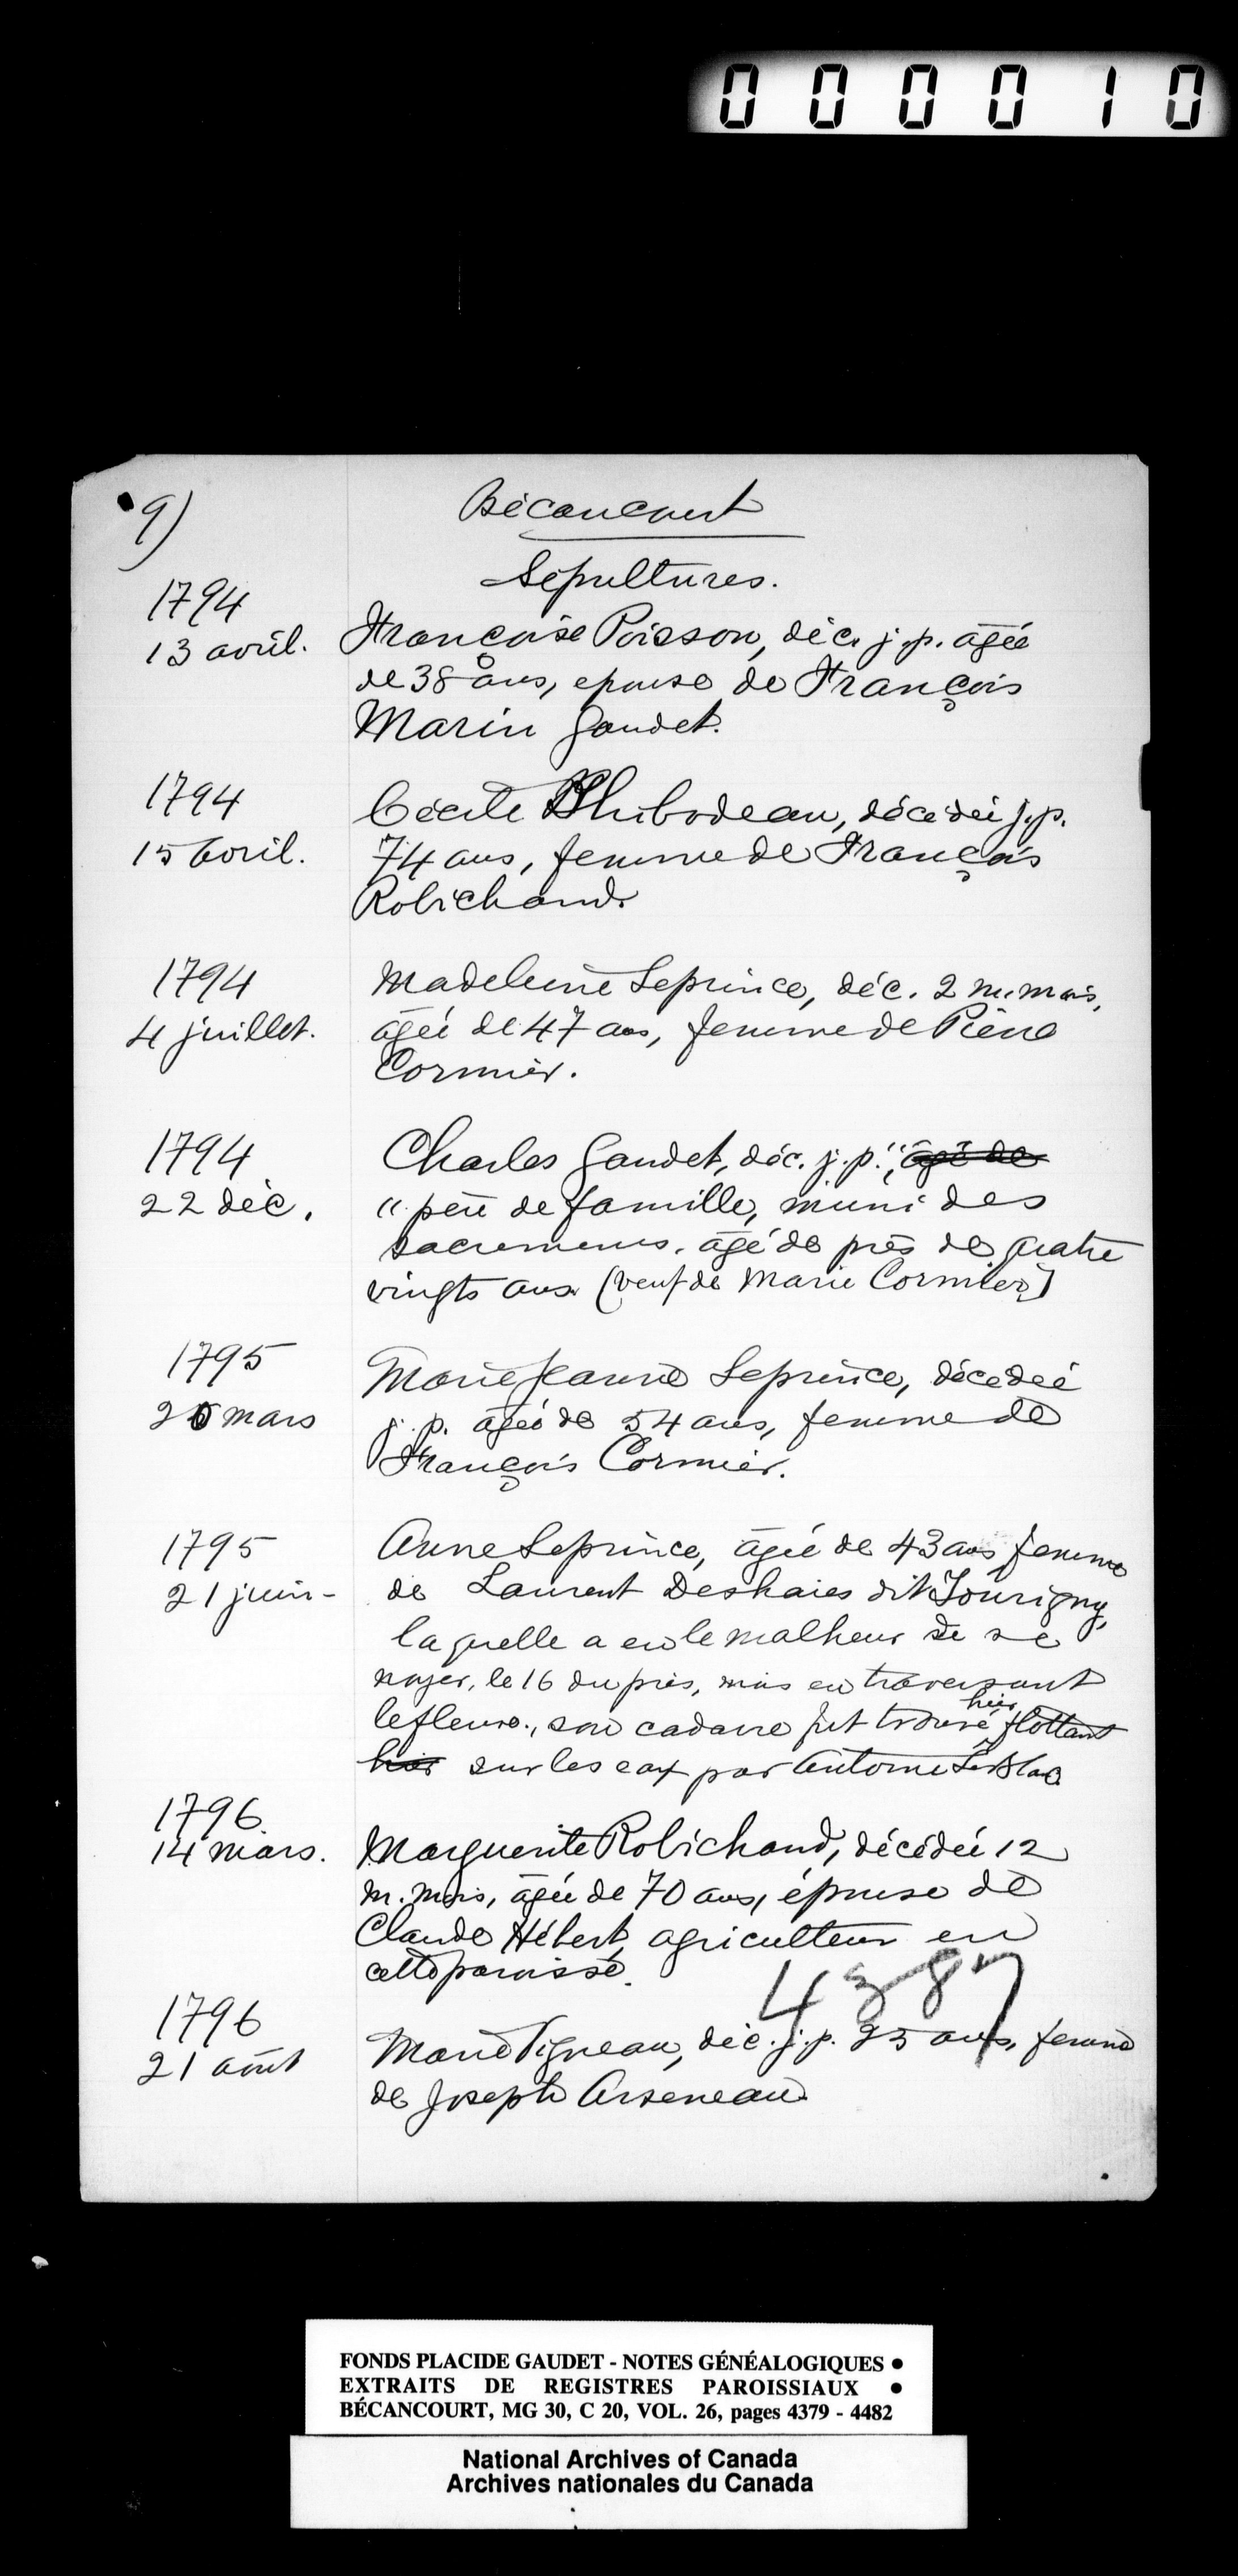 000010
9)
Bécancourt
Sépultures.
1794
13 avril.
Françoise Poisson, déc. j.p. âgée
de 38 ans, epouse de François
Marin Gaudet.
1794
15 avril.
Cécile Thibodeau, décédée j.p.
74 ans, femme de François
Robichaud.
1794
4 juillet.
Madeleine Leprince, déc. 2 m. mois,
âgée de 47 ans, femme de Pierre
Cormier.
1794
22 déc.
Charles Gaudet, déc. j.p. âgé de
"père de famille, muni des
sacrements. âgé de près de quatre
vingts ans (veuf de Marie Cormier)
1795
20 mars
Marie Jeanne Leprince, décédée
j.p. âgée de 54 ans, femme de
François Cormier.
1795
21 juin-
Anne Leprince, âgée de 43 ans femme
de Laurent Deshaies dit Tourigny,
laquelle a eu le malheur de se
noyer, le 16 du prés. mois en traversant
le fleuve, son cadavre fut trouvé hier flottant
hier sur les eaux par Antoine LeBlanc
1796
14 mars.
Marguerite Robichaud, décédée 12
m. mois, âgée de 70 ans, épouse de
Claude Hébert, agriculteur en
cette paroisse.
4387
1796
21 août
Marie Vigneau, déc. j.p. 25 ans, femme
de Joseph Arseneau
FONDS PLACIDE GAUDET - NOTES GÉNÉALOGIQUES •
EXTRAITS DE REGISTRES PAROISSIAUX •
BÉCANCOURT, MG 30, C 20, VOL. 26, pages 4379 - 4482
National Archives of Canada
Archives nationales du Canada